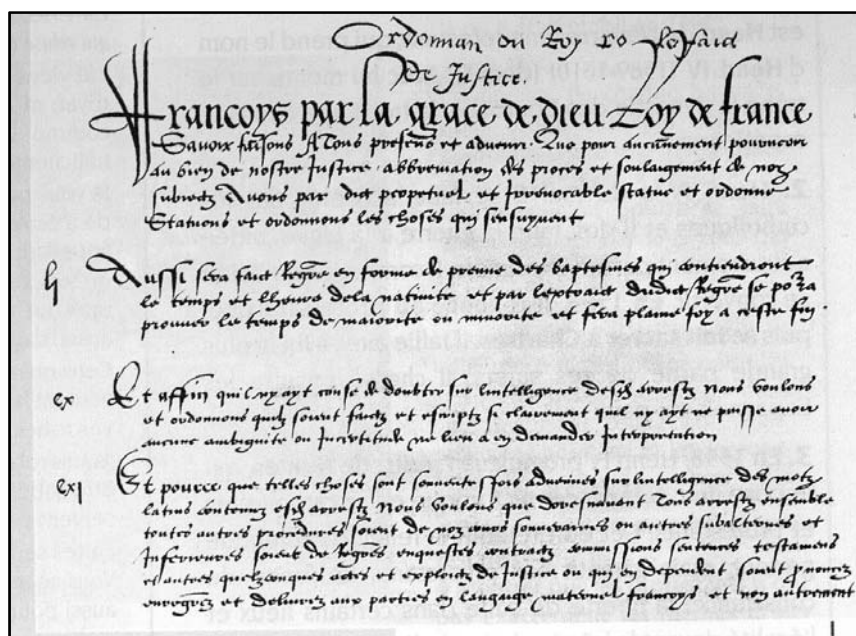 Ordonnan du Roy le faict
De Justice.
Francoys par la grace de dieu Roy de france
Savoir faisons A Tous presens et advenir. Que pour aucunement pourveoir
Au bien de nostre Justice abbreviation des proces et soulagement de noz
subiectz Avons par dict perpetuel et Irrevocable statue et ordonne
Statuons et ordonnons les choses qui sensuyvent
lj Aussi sera faict Regre en forme de preuve des baptesmes qui contiendront
le temps et lheure dela nativite et par lextraict dudict Regre se porra
prouver le temps de maiorite ou minorite et fera plaine foy a ceste fin
cx Et affin quil ny ayt cause de doubter sur lintelligence desd arrestz Nous voulons
et ordonnons quilz soient faictz et escriptz si clairement quil ny ayt ne puisse avoir
aucune ambiguite ou Incertitude ne lieu a en demander Interpretion
cxj Et pource que telles choses sont souventesfois advenues sur lintelligence des motz
latins contenuz esd arrestz Nous voulons que doresnavant Tous arrestz ensemble
toutes autres procedures soient de noz cours souveraines ou autres subalternes et
Inferieures soient de Regres enquestes contractz commissions sentences testamens
et autres quelzconques actes et exploictz de Justice ou qui en dependent soient prononcez
enregrez et delivrez aux parties en langage maternel francoys et non autrement